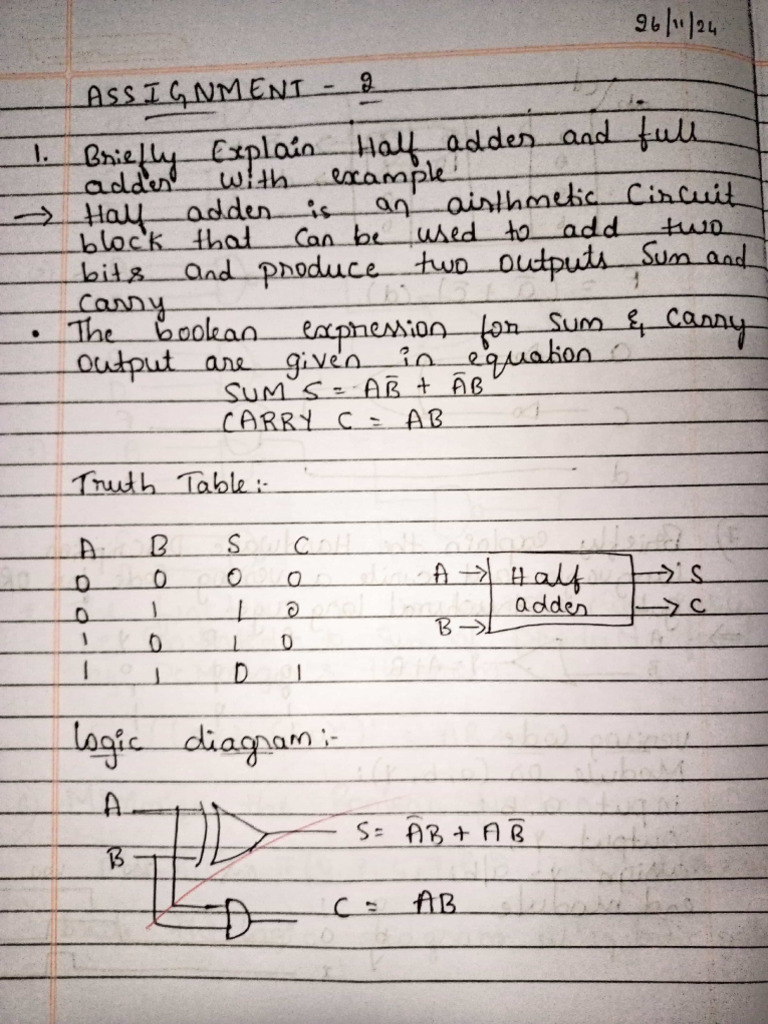 26/11/24
ASSIGNMENT - 2
1. Briefly Explain Half adder and full
adder with example.
→ Half adder is an airthmetic Circuit
block that can be used to add two
bits and produce two outputs Sum and
Carry
• The boolean expression for Sum & Carry
output are given in equation
SUM S = AB̅ + A̅B
CARRY C = AB
Truth Table:-
A B S C
0 0 0 0
0 1 1 0
1 0 1 0
1 1 0 1
A → Half → S
adder → C
B →
Logic diagram:-
A
S = A̅B + AB̅
B
C = AB